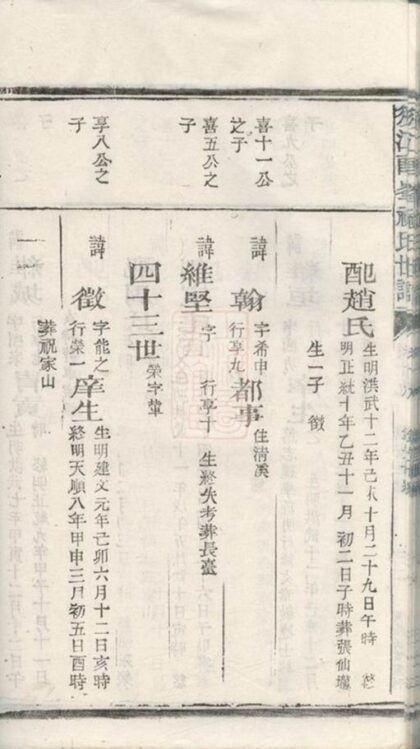 配趙氏
生明洪武十二年己未十月二十九日午時
明正統十年乙丑十一月初二日子時葬張仙壠
生一子 徵
喜十一公
之子
諱 翰
字希申
行享九
都事
住清溪
喜五公之
子
諱 維堅
字 行享十 生終失考葬長臺
四十三世
榮字輩
享八公之
子
諱 徵
字能之
行榮一
庠生
生明建文元年己卯六月十二日亥時
終明天順八年甲申三月初五日酉時
葬祝家山